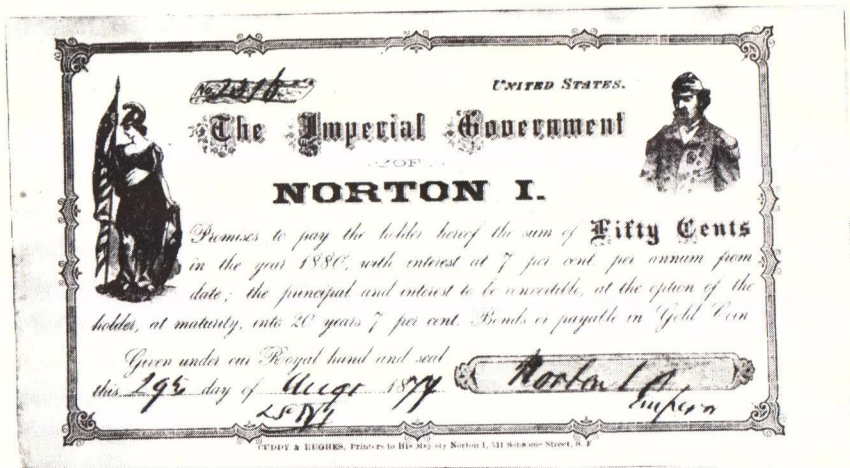 No.
UNITED STATES.
The Imperial Government
OF
NORTON I.
Promises to pay the holder hereof the sum of Fifty Cents
in the year 1880, with interest at 7 per cent. per annum from
date; the principal and interest to be convertible, at the option of the
holder, at maturity, into 20 years 7 per cent. Bonds or payable in Gold Coin
Given under our Royal hand and seal
this 29th day of Augt 1877
Norton I
Emperor
CUDDY & HUGHES, Printers to His Majesty Norton I, 511 Sansome Street, S. F.